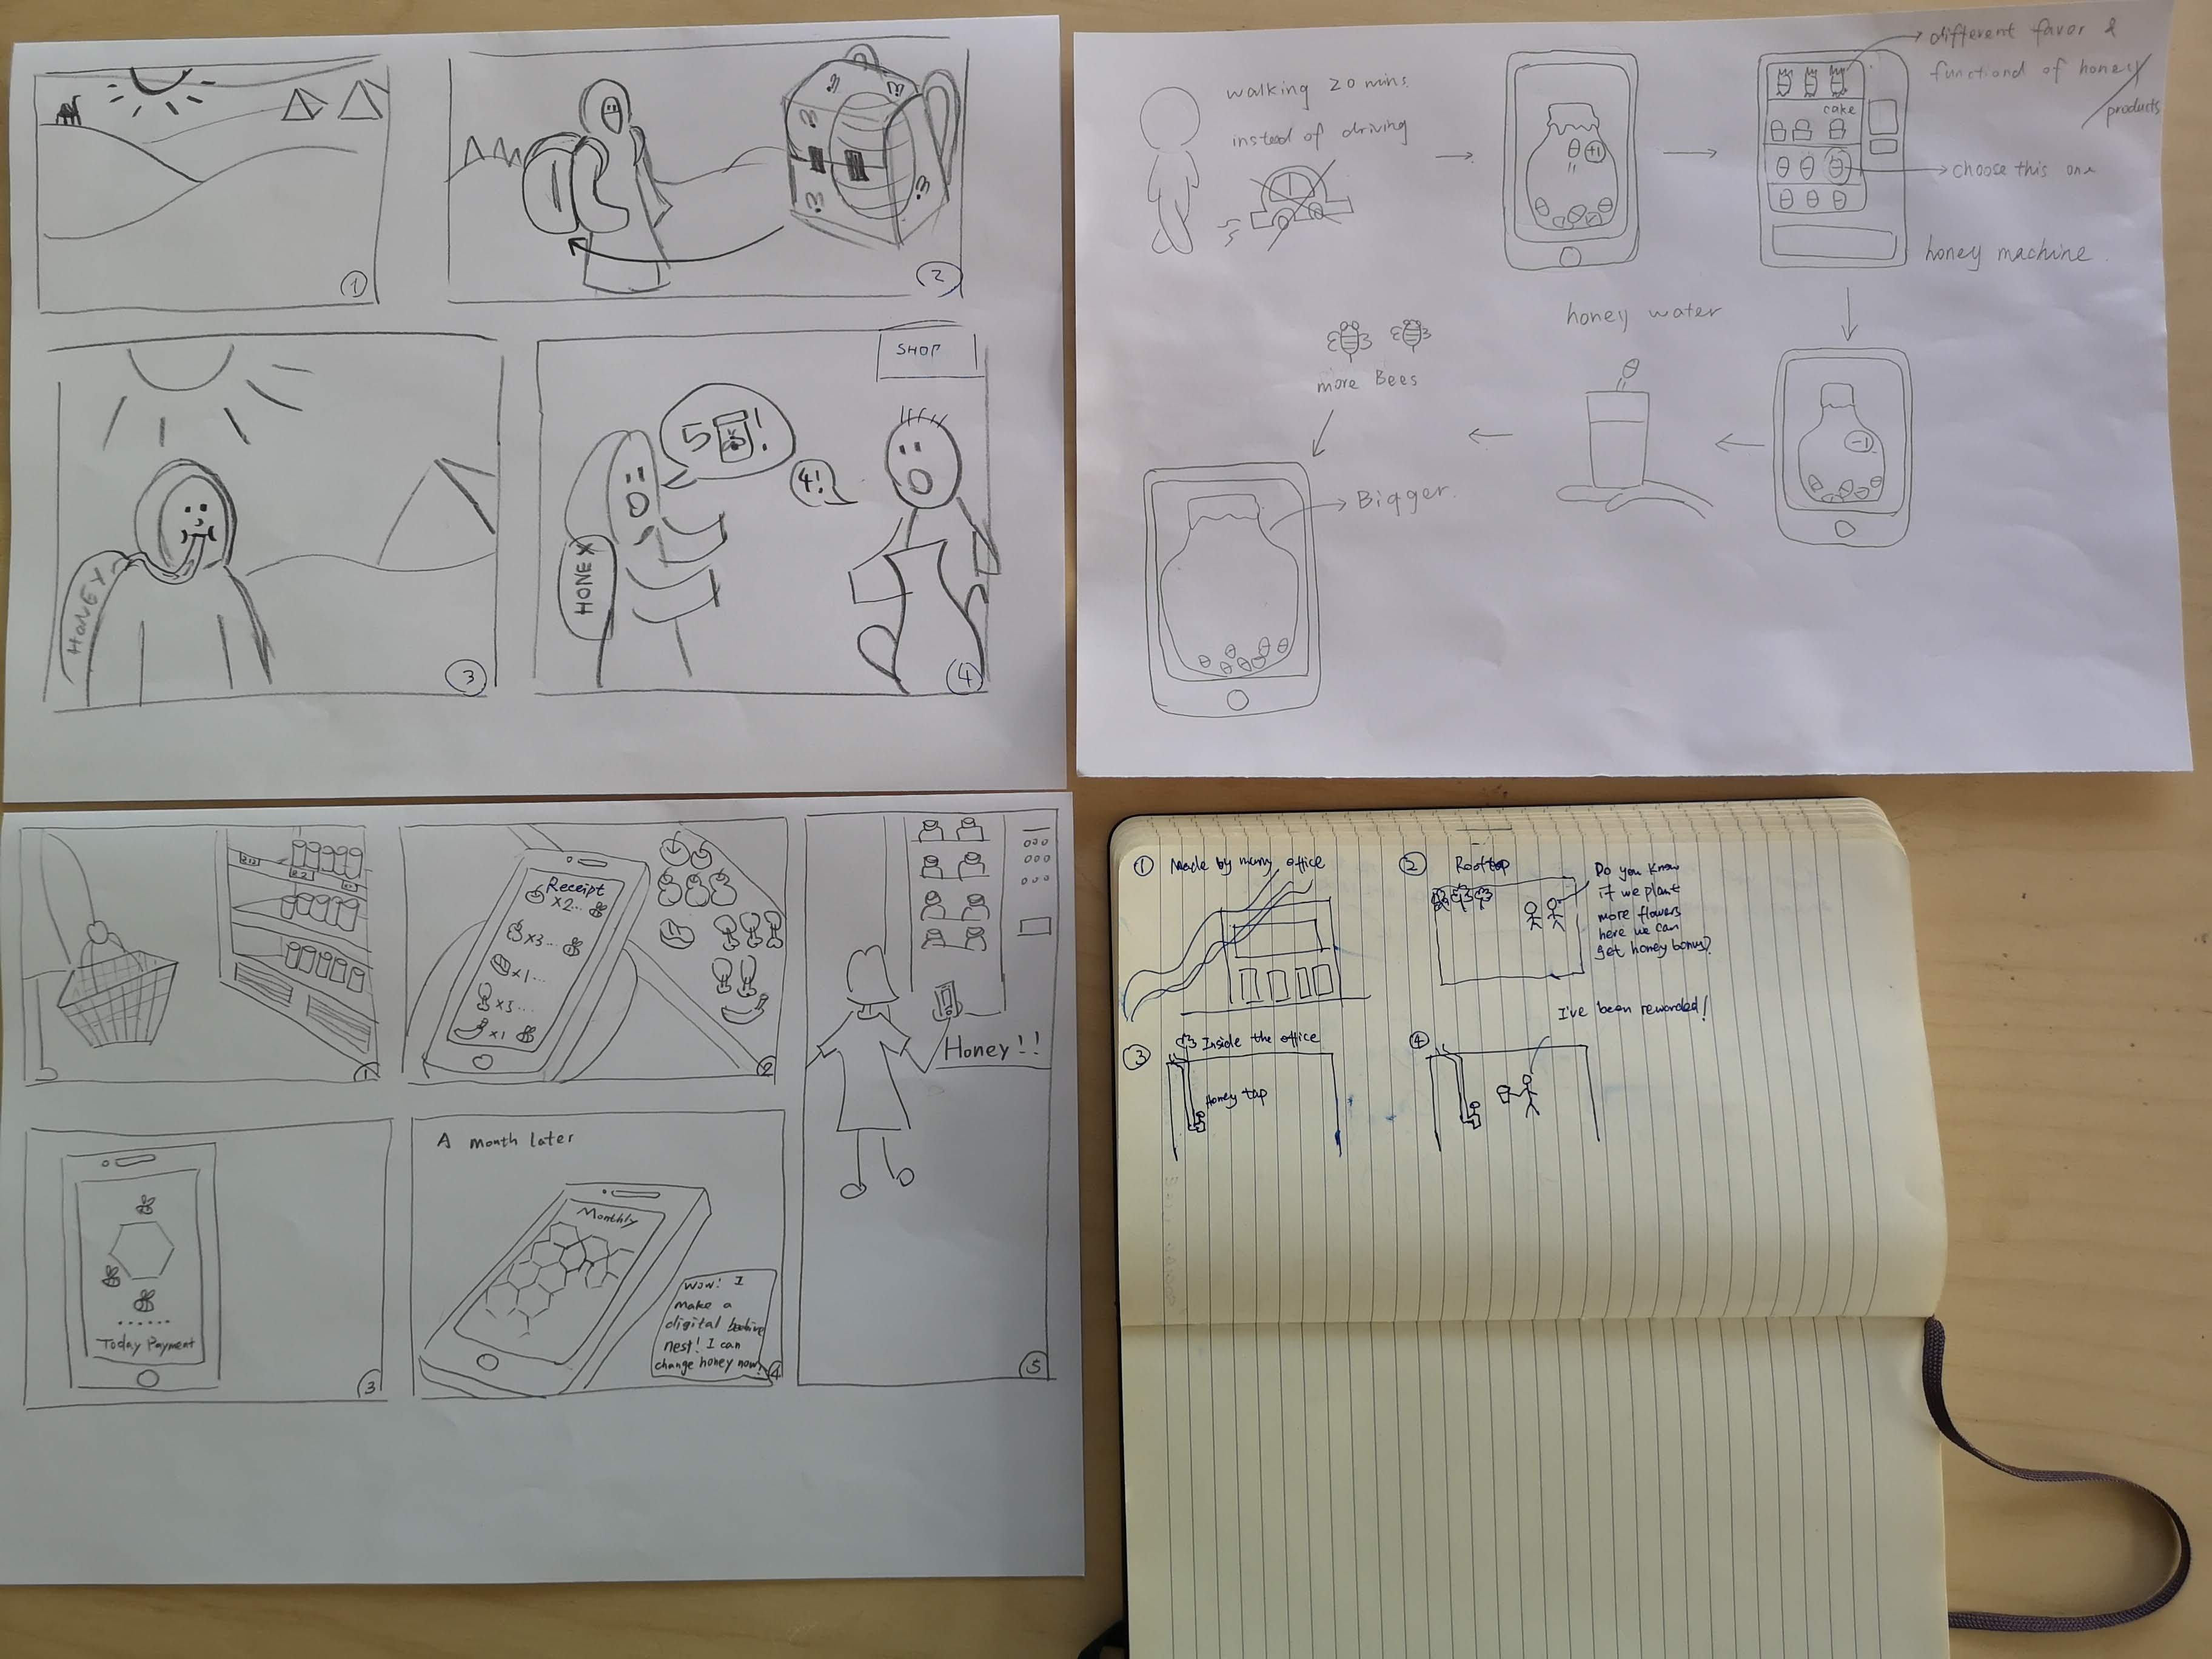 ①
②
HONEY
③
SHOP
5 !
4!
HONEX
④
walking 20 mins.
instead of driving
+1
different favor &
functiond of honey
products
cake
choose this one
honey machine.
-1
honey water
more Bees
Bigger.
①
Receipt
x2...
x3...
x1...
x3...
x1
②
Today Payment
③
A month later
Monthly
Wow! I
make a
digital
nest! I can
change honey now!
④
Honey!!
⑤
① Made by many office
② Rooftop
Do you know
if we plant
more flowers
here we can
get honey bonus?
③ Inside the office
Honey tap
④
I've been rewarded!